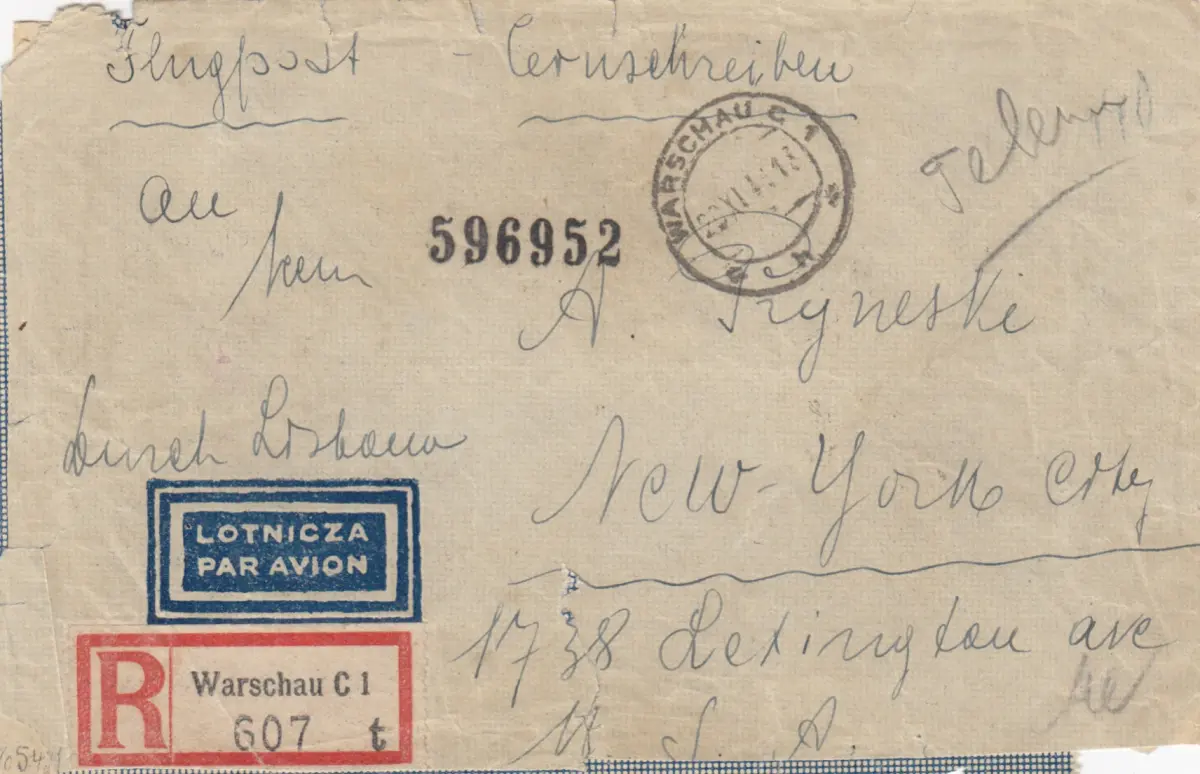 Flugpost - Cernschreiben
WARSCHAU C 1
An
596952
Herrn
A. Tryneski
Durch Lisbona
New-York City
LOTNICZA
PAR AVION
1738 Lexington ave
R
Warschau C 1
607 t
U. S. A.